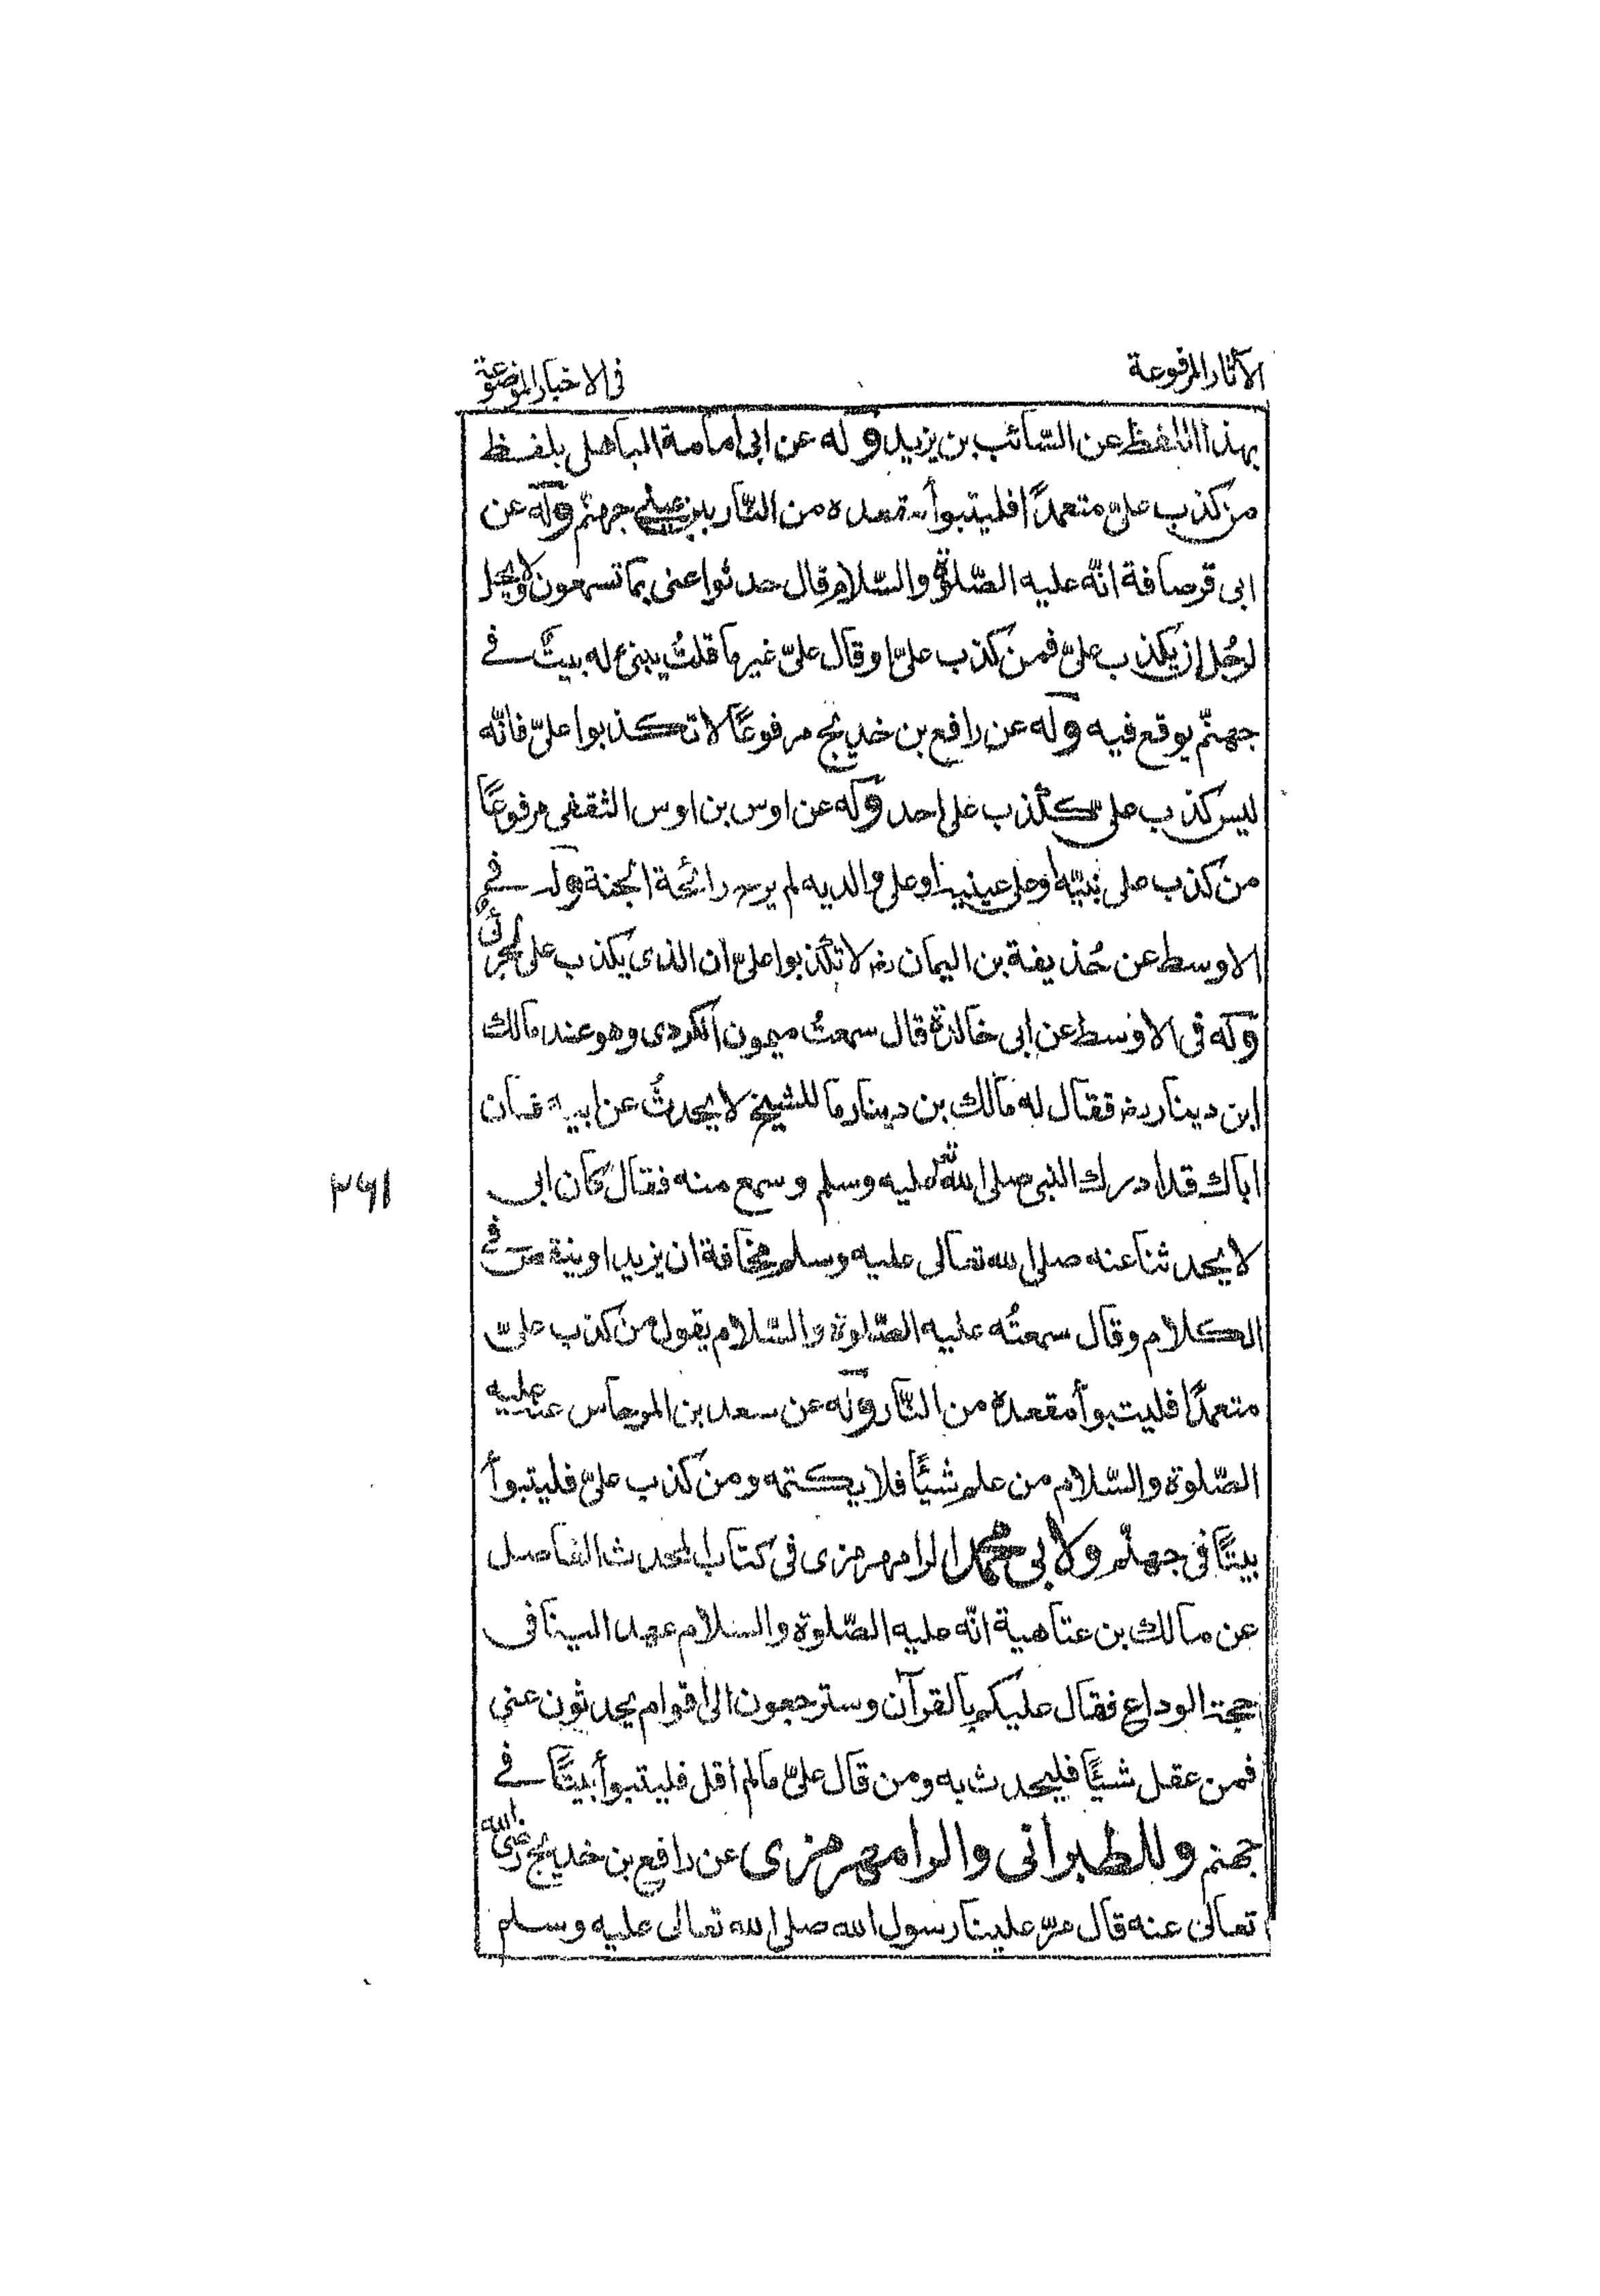 الآثار المرفوعة
فى الاخبار الموضوعة
بهذا اللفظ عن السّائب بن يزيد وله عن ابى امامة الباهلى بلفظ
من كذب علىّ متعمدًا فليتبوأ مقعده من النّار بين عينى جهنّم وله عن
ابى قرصافة انّه عليه الصّلوة والسّلام قال حدثوا عنى بما تسمعون ولا يحل
لرجُل ان يكذب علىّ فمن كذب علىّ او قال علىّ غير ما قلتُ يبنى له بيتٌ فى
جهنّم يوقع فيه وله عن رافع بن خديج مرفوعًا لا تكذبوا علىّ فانّه
ليس كذب علىّ ككذب على احد وله عن اوس بن اوس الثقفى مرفوعًا
من كذب على نبيّه او على عينيه او على والديه لم يرح رائحة الجنة وله فى
الاوسط عن حُذيفة بن اليمان رضـ لا تكذبوا علىّ ان الذى يكذب على لجرئٌ
وله فى الاوسط عن ابى خالدة قال سمعتُ ميمون الكردى وهو عند مالك
ابن دينار رضـ فقال له مالك بن دينار ما للشيخ لا يحدثُ عن ابيه فان
اباك قد ادرك النبى صلى الله عليه وسلم وسمع منه فقال كان ابى
لا يحدثنا عنه صلى الله تعالى عليه وسلم مخافة ان يزيد او ينقص فى
الكلام وقال سمعتُه عليه الصّلوة والسّلام يقول من كذب علىّ
متعمدًا فليتبوأ مقعده من النّار وله عن سعد بن المدحاس عنه عليه
الصّلوة والسّلام من علم شيئًا فلا يكتمه ومن كذب علىّ فليتبوأ
بيتًا فى جهنّم ولابى محمد الرامهرمزى فى كتاب المحدث الفاصل
عن مالك بن عتاهية انّه عليه الصّلوة والسلام عهد الينا فى
حجة الوداع فقال عليكم بالقرآن وسترجعون الى اقوام يحدثون عنى
فمن عقل شيئًا فليحدث به ومن قال علىّ مالم اقل فليتبوأ بيتًا فى
جهنم وللطبرانى والرامهرمزى عن رافع بن خديج رضى الله
تعالى عنه قال مرّ علينا رسول الله صلى الله تعالى عليه وسلم